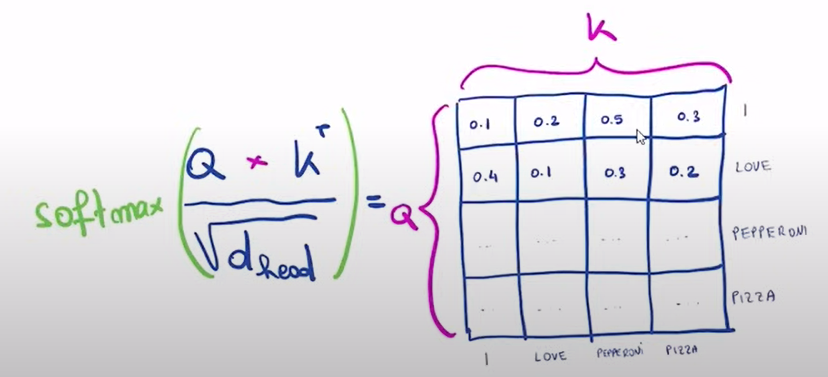 K
softmax ( Q × K^T / √d_head ) = Q
0.1 0.2 0.5 0.3 I
0.4 0.1 0.3 0.2 LOVE
... ... ... ... PEPPERONI
... ... ... ... PIZZA
I LOVE PEPPERONI PIZZA